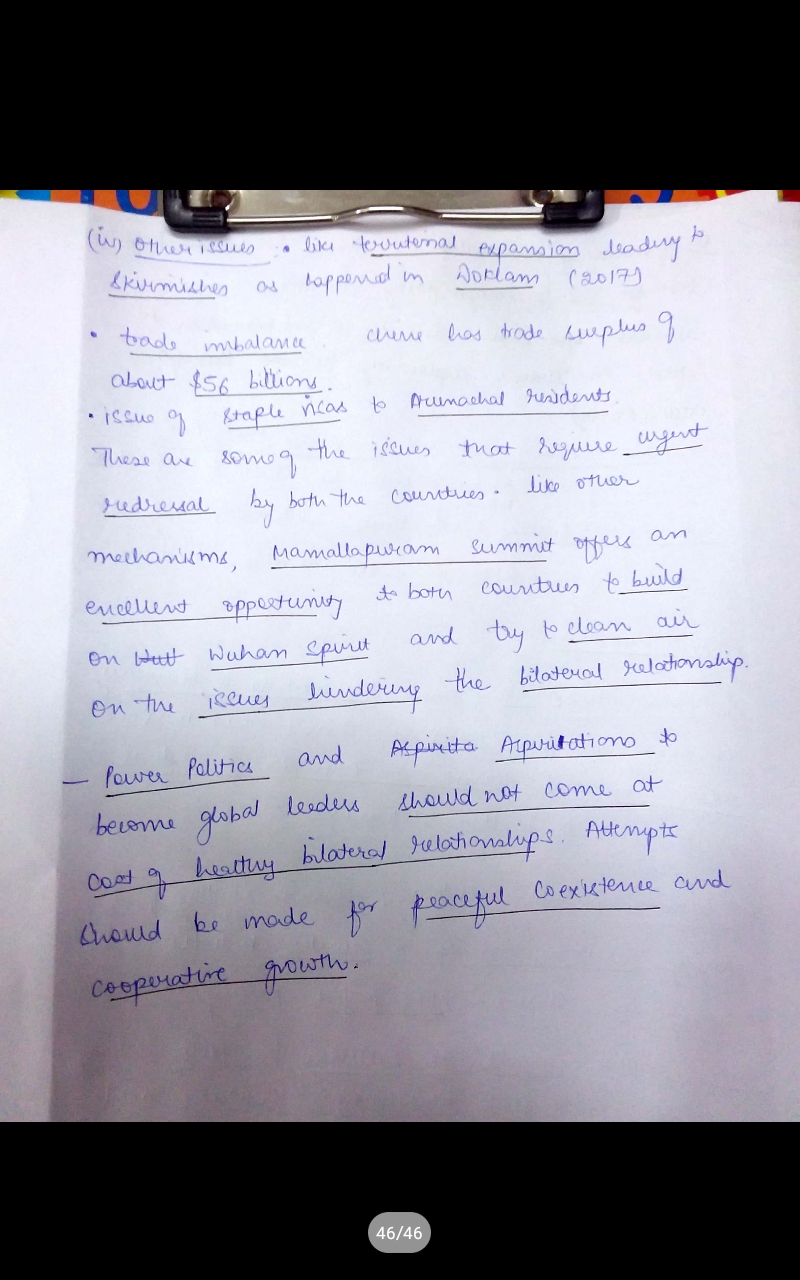 (iv) Other issues • like territorial expansion leading to
skirmishes as happened in Doklam (2017)
• trade imbalance. China has trade surplus of
about $56 billions.
• issue of staple visas to Arunachal residents.
These are some of the issues that require urgent
redressal by both the countries. like other
mechanisms, Mamallapuram summit offers an
excellent opportunity to both countries to build
on Wuhan spirit and try to clean air
on the issues hindering the bilateral relationship.
— Power Politics and Aspirations to
become global leaders should not come at
cost of healthy bilateral relationships. Attempts
should be made for peaceful coexistence and
cooperative growth.
46/46